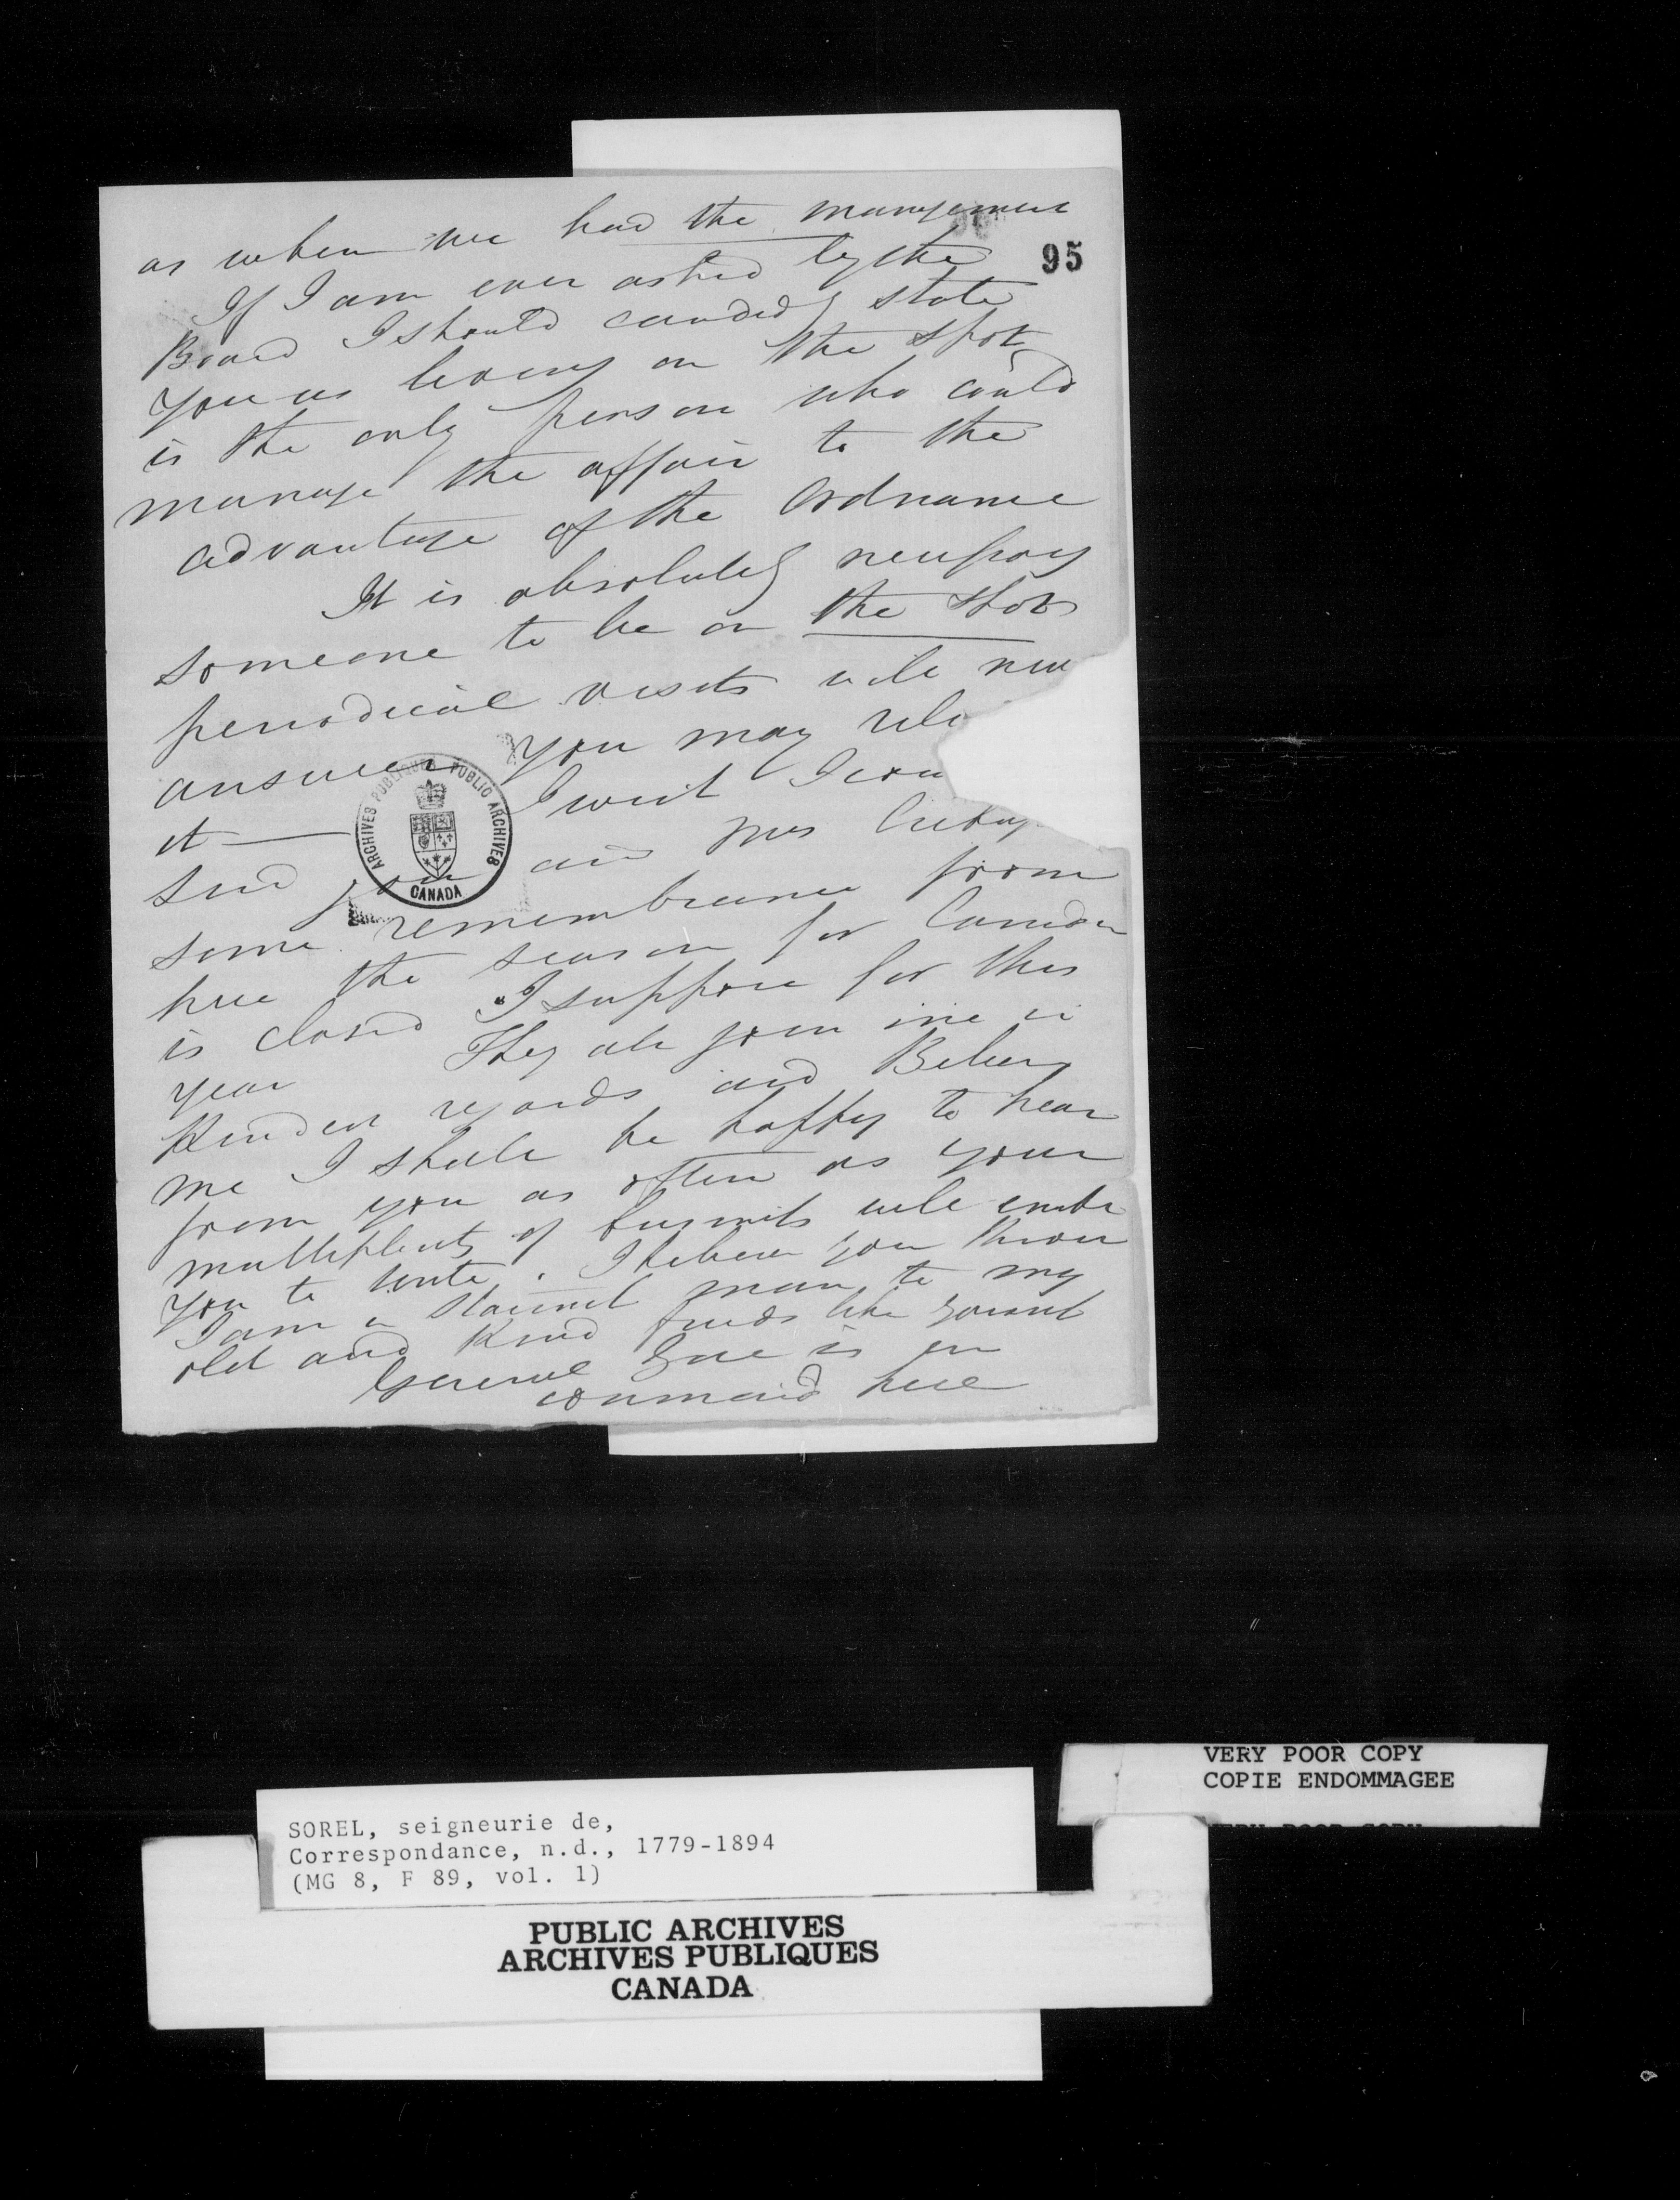 as when we had the management
95
If I am ever asked by the
Board I should candidly state
you as living on the spot
is the only person who could
manage the affair to the
advantage of the Ordnance
It is absolutely necessary
someone to be on the spot
periodical visits will
answer you may
it — I wish I
send you and Mrs
some remembrance from
here the season for Canada
is closed I suppose for this
year They all join me in
Kindest regards and Believe
me I shall be happy to hear
from you as often as your
multiplicity of business will
you to write. I believe you know
I am a staunch man to my
old and Kind friends like
General is in
command here
ARCHIVES PUBLIQUES PUBLIC ARCHIVES
CANADA
VERY POOR COPY
COPIE ENDOMMAGEE
SOREL, seigneurie de,
Correspondance, n.d., 1779-1894
(MG 8, F 89, vol. 1)
PUBLIC ARCHIVES
ARCHIVES PUBLIQUES
CANADA